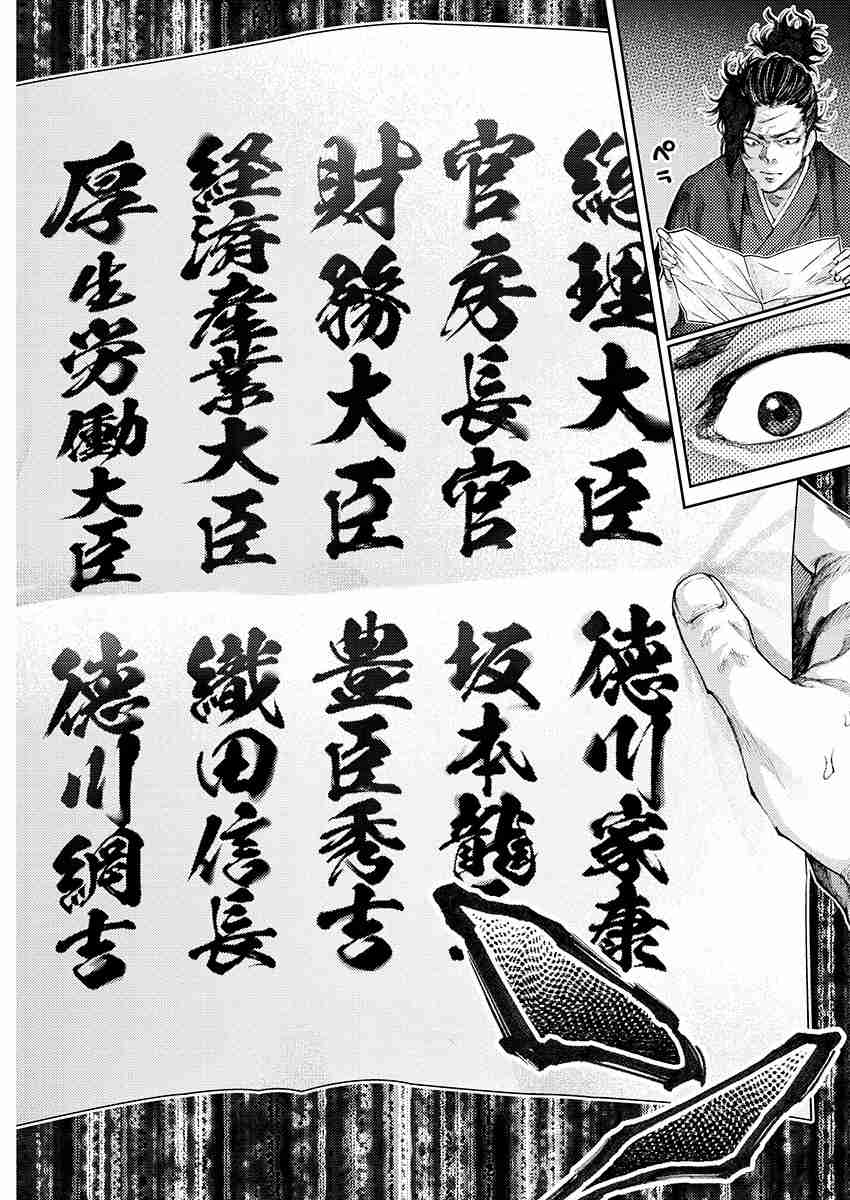 ペラ
総理大臣 徳川家康
官房長官 坂本龍
財務大臣 豊臣秀吉
経済産業大臣 織田信長
厚生労働大臣 徳川綱吉